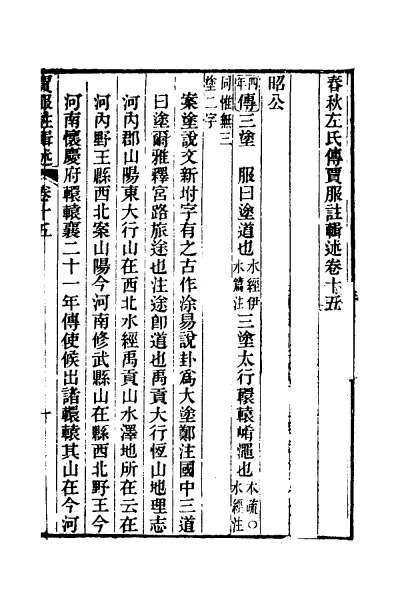 春秋左氏傳賈服註輯述卷十五
昭公
四年傳三塗　服曰塗道也水經伊水篇注三塗太行轘轅崤澠也本疏〇水經注
同惟無三塗二字
案塗說文新坿字有之古作涂易說卦爲大塗鄭注國中三道
曰塗爾雅釋宮路旅途也注途卽道也禹貢大行恆山地理志
河內郡山陽東大行山在西北水經禹貢山水澤地所在云在
河內野王縣西北案山陽今河南修武縣山在縣西北野王今
河南懷慶府轘轅襄二十一年傳使候出諸轘轅其山在今河
賈服註輯述 卷十五